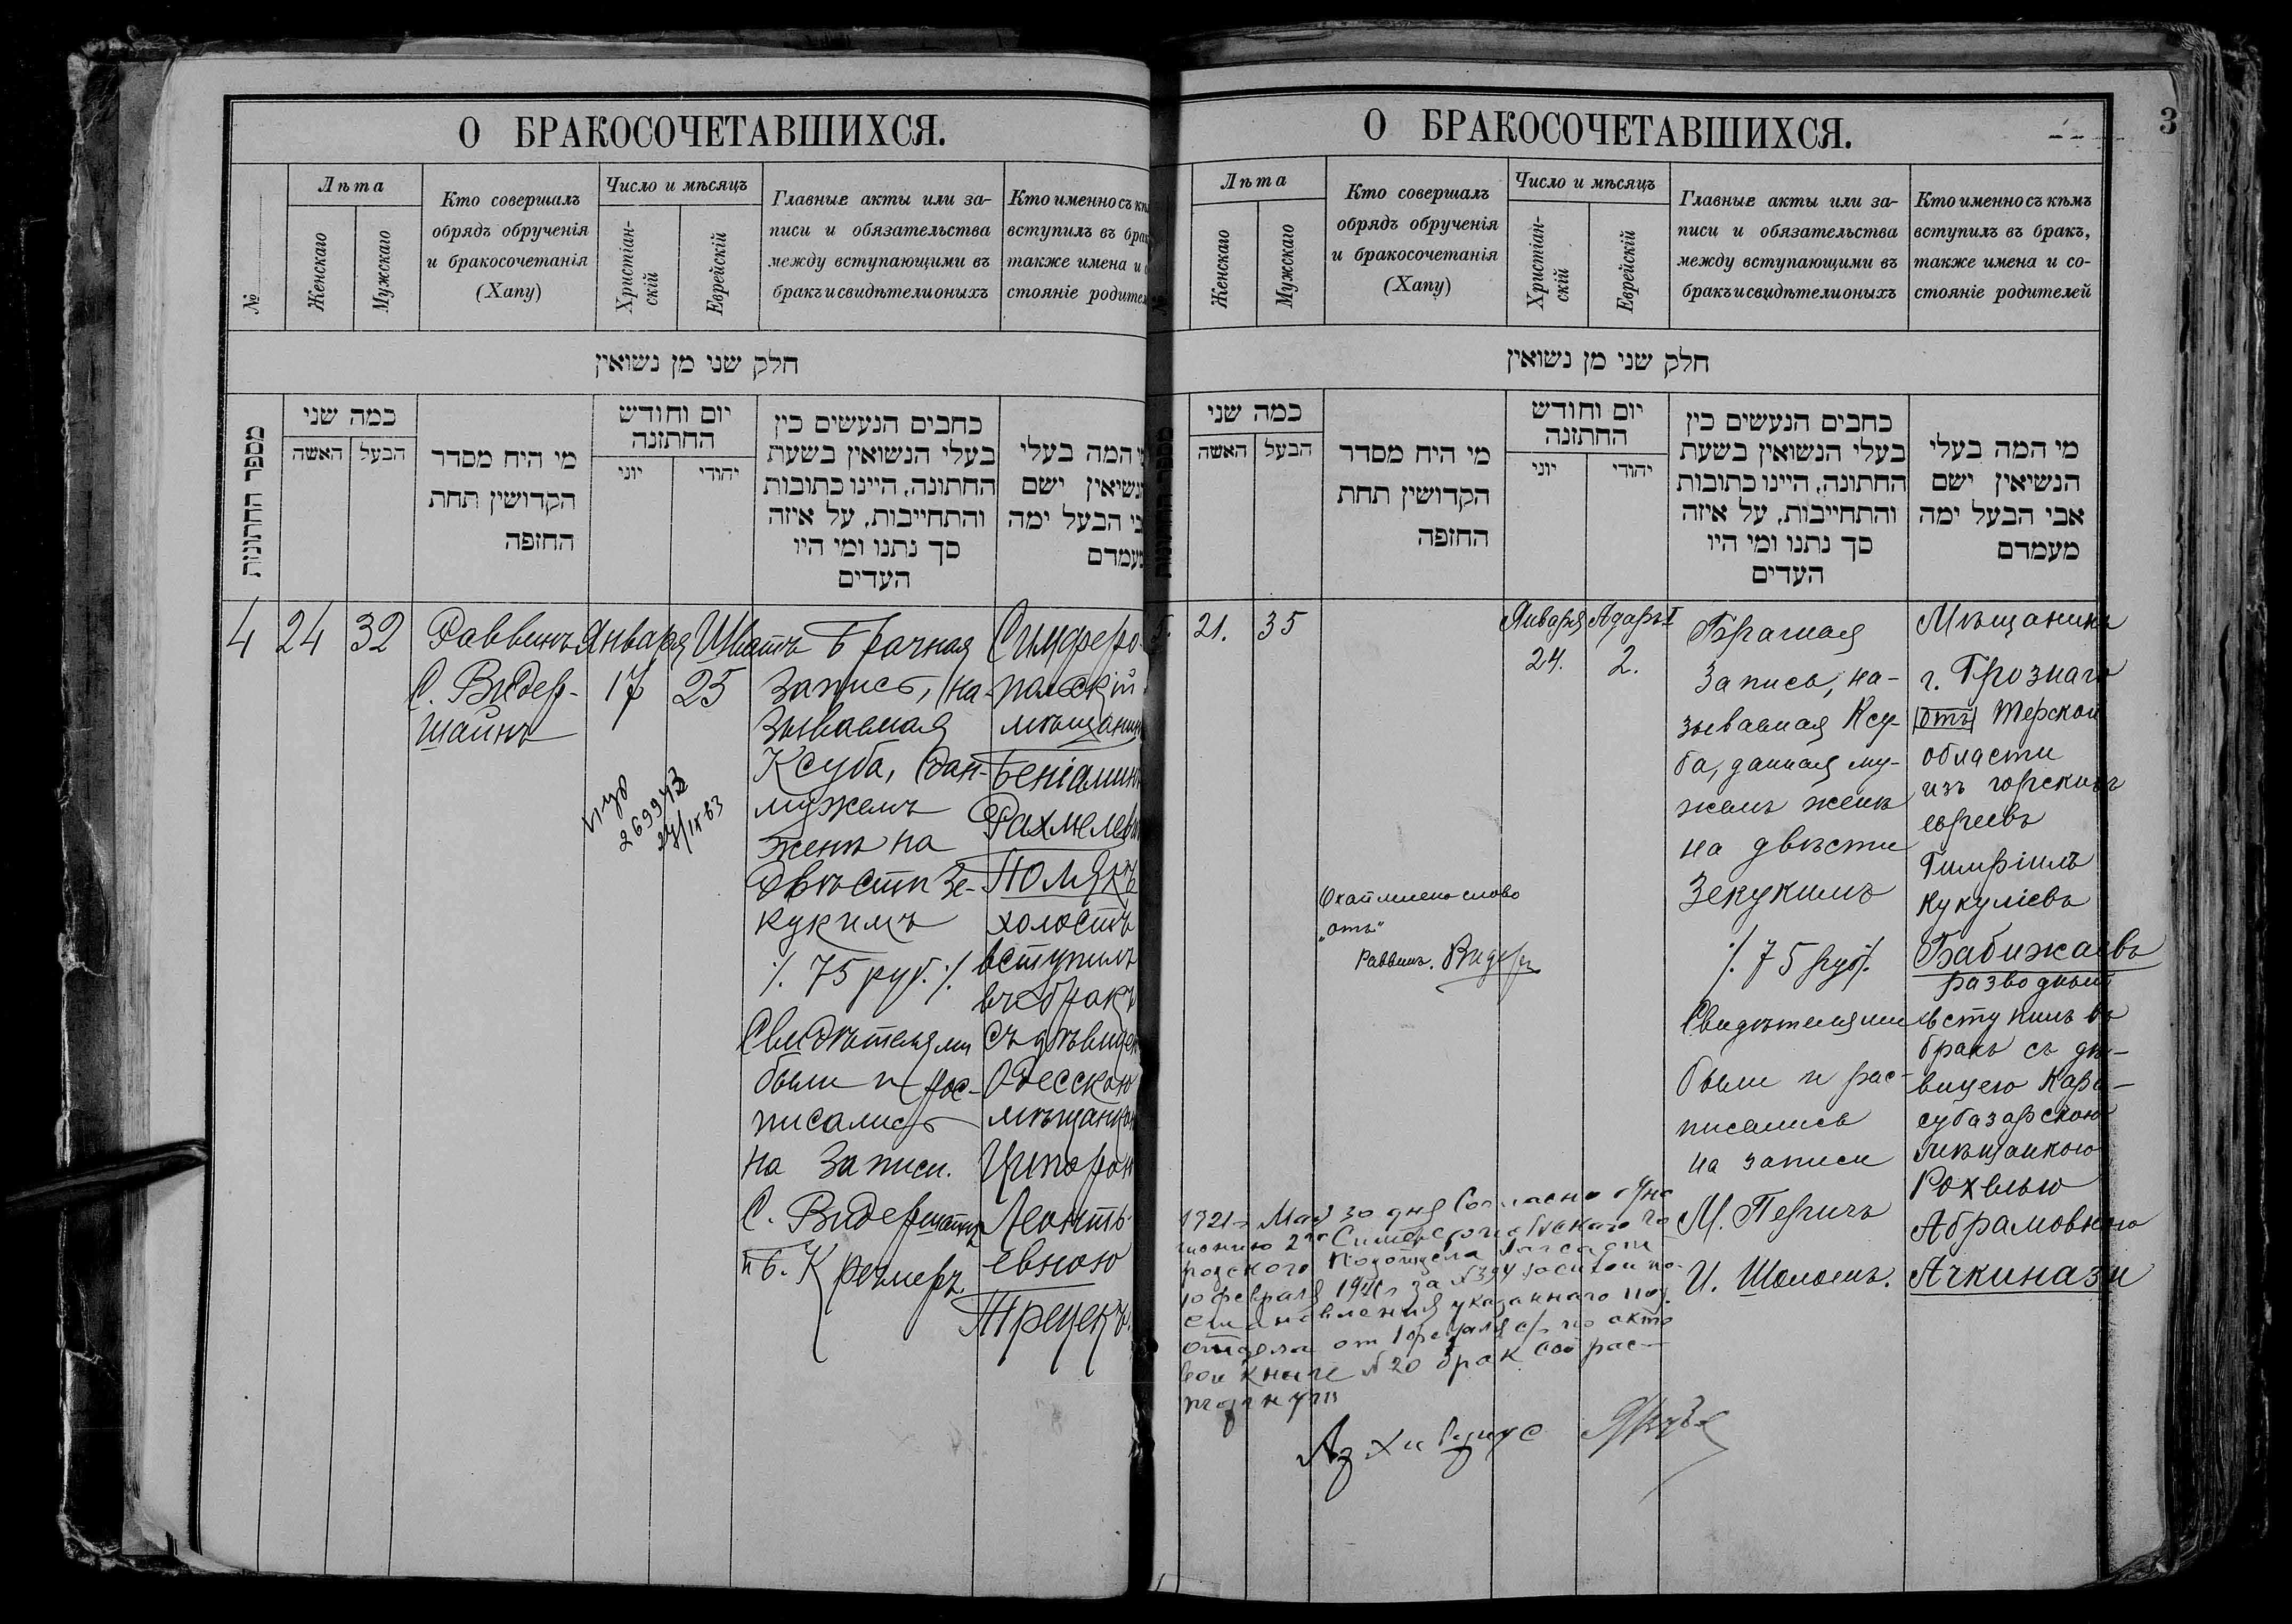 О БРАКОСОЧЕТАВШИХСЯ.
№
Лѣта
Женскаго
Мужскаго
Кто совершалъ
обрядъ обрученія
и бракосочетанія
(Хапу)
Число и мѣсяцъ
Христіан-
скій
Еврейскій
Главные акты или за-
писи и обязательства
между вступающими въ
бракъ и свидѣтели оныхъ
Кто именно съ
вступилъ въ
также имена и
стояніе
חלק שני מן נשואין
מספר החתונות
כמה שני
האשה
הבעל
מי היח מסדר
הקדושין תחת
החופה
יום וחודש
החתונה
יוני
יהודי
כחבים הנעשים כין
בעלי הנשואין בשעת
החתונה, היינו כתובות
והתחייבות, על איזה
סך נתנו ומי היו
העדים
המה בעלי
ישם
הבעל ימה
4
24
32
Раввинъ
С. Видер-
шайнъ
Января
17
Шватъ
25
Брачная
запись, на-
зываемая
Ксуба, дан-
мужемъ
женѣ на
двѣсти зе-
кукимъ
٪ 75 руб. ٪
Свидѣтелями
были и рос-
писались
на записи.
С. Видершайнъ
и Б. Кремеръ
Симферо-
польскій
мѣщанинъ
Беніаминъ
Полякъ
холостъ
вступилъ
въ бракъ
съ дѣвицею
Одесскою
Ципорою
Леонть-
евною
Трецекъ.
269943
О БРАКОСОЧЕТАВШИХСЯ.
3
Лѣта
Женскаго
Мужскаго
Кто совершалъ
обрядъ обрученія
и бракосочетанія
(Хапу)
Число и мѣсяцъ
Христіан-
скій
Еврейскій
Главные акты или за-
писи и обязательства
между вступающими въ
бракъ и свидѣтели оныхъ
Кто именно съ кѣмъ
вступилъ въ бракъ,
также имена и со-
стояніе родителей
חלק שני מן נשואין
כמה שני
האשה
הבעל
מי היח מסדר
הקדושין תחת
החופה
יום וחודש
החתונה
יוני
יהודי
כחבים הנעשים כין
בעלי הנשואין בשעת
החתונה, היינו כתובות
והתחייבות, על איזה
סך נתנו ומי היו
העדים
מי המה בעלי
הנשיאין ישם
אבי הבעל ימה
מעמדם
5.
21.
35
Января
24.
Адаръ I
2.
Брачная
запись, на-
зываемая Ксу-
ба, данная му-
жемъ женѣ
на двѣсти
зекукимъ
٪ 75 руб٪
Свидѣтелями
были и рас-
писались
на записи
М. Перичъ
И. Шоломъ.
Мѣщанинъ
г. Грознаго
отъ Терской
области
изъ горскихъ
евреевъ
Гимріилъ
Кукуліевъ
Бабижаевъ
разводный
вступилъ въ
бракъ съ дѣ-
вицею Кара-
субазарскою
мѣщанкою
Рохелью
Абрамовною
Ачкинази
Охаймлено слово
„отъ"
Раввинъ. Видер
1921 г Мая 30 дня Согласно
2го Симферопольского го
родского подотдела
10 февраля 1921 г за № 394
указанного под
отдела от 1 февраля с/г по акто
вой книге № 20 брак сей рас-
торгнут
Архивариус